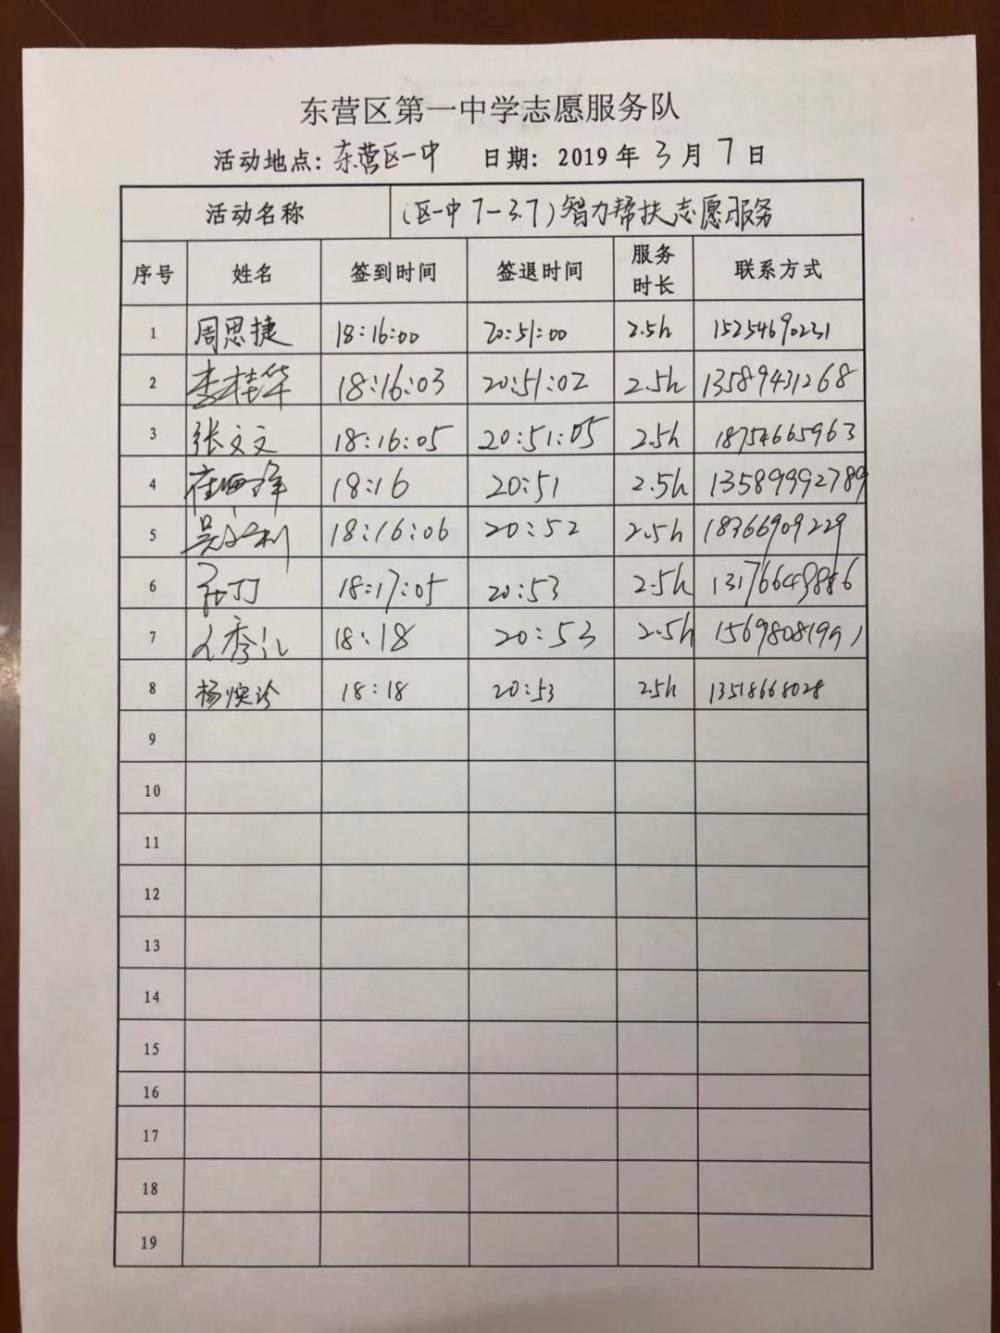 东营区第一中学志愿服务队
活动地点: 东营区一中 日期: 2019 年 3 月 7 日
活动名称 (区一中7-3.7)智力帮扶志愿服务
序号 姓名 签到时间 签退时间 服务时长 联系方式
1 周思捷 18:16:00 20:51:00 2.5h 15254690231
2 李桂华 18:16:03 20:51:02 2.5h 13589431268
3 张文文 18:16:05 20:51:05 2.5h 18754665963
4 18:16 20:51 2.5h 13589992789
5 18:16:06 20:52 2.5h 18366909229
6 18:17:05 20:53 2.5h
7 18:18 20:53 2.5h 15698081991
8 18:18 20:53 2.5h 13518668028
9
10
11
12
13
14
15
16
17
18
19